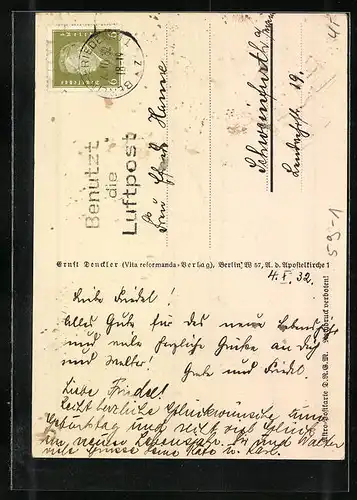 Benutzt
die
Luftpost
Frau
Hanne
Schweinfurth
19.
Ernst Denckler (Vita reformanda-Verlag), Berlin W 57, A. d. Apostelkirche 1
Nachdruck verboten!
59-1
4. 32.
Liebe Friedel!
Alles Gute für das neue Lebensjahr
und viele herzliche Grüße an dich
und Walter!
Grete und
Liebe Friedel!
Recht herzliche Glückwünsche zum
Geburtstag und recht viel Glück
im neuen Lebensjahr. Dir und Walter
viele Grüsse Deine Käte u. Karl.